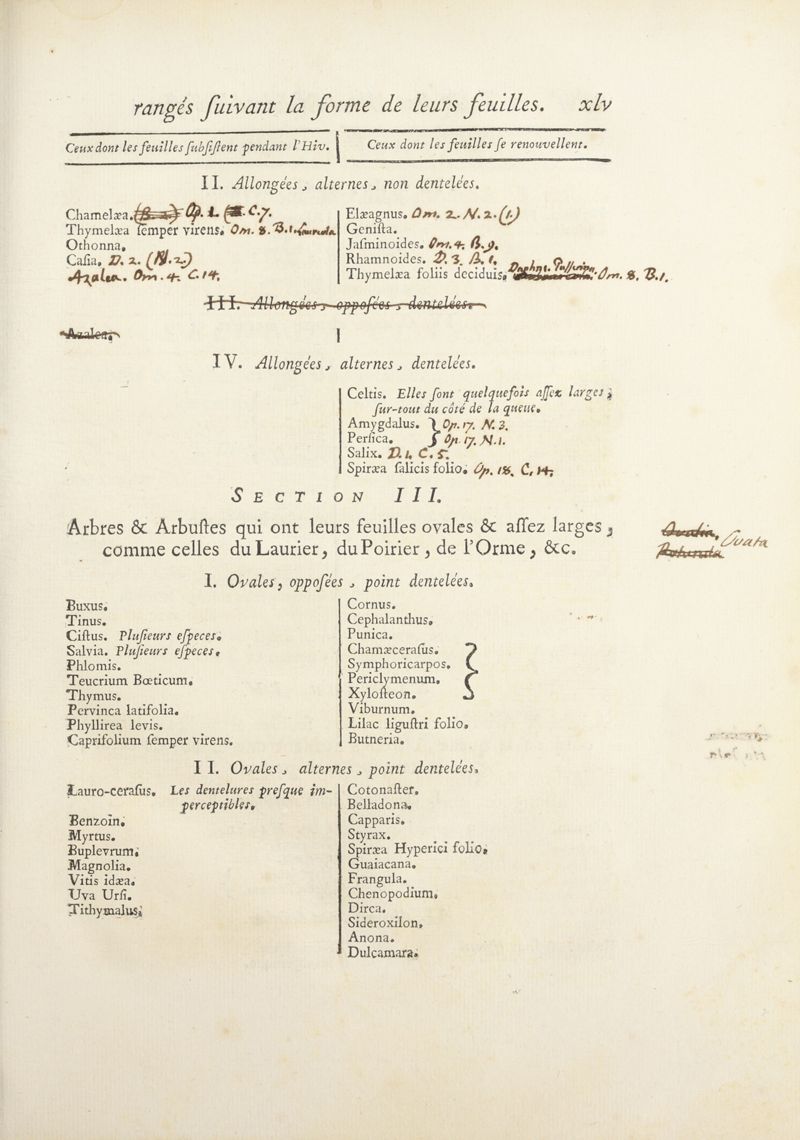 rangés ſuivant la forme de leurs feuilles. xlv
Ceux dont les feuilles ſubſiſtent pendant l'Hiv.
Ceux dont les feuilles ſe renouvellent.
II. Allongées, alternes, non dentelées.
Chamelæa. Op. 1. C. 7.
Thymelæa ſemper virens. Om. 8. B. 1.
Othonna.
Caſia. D. 2. (N. 2.)
Azalea. Om. 4. C. 14.
Elæagnus. Om. 2. N. 2. (1.)
Geniſta.
Jaſminoides. Om. 4. B. 9.
Rhamnoides. D. 3. A. 1.
Thymelæa foliis deciduis. Om. 8. B. 1.
III. Allongées, oppoſées, dentelées.
Azalea.
IV. Allongées, alternes, dentelées.
Celtis. Elles ſont quelquefois aſſez larges,
ſur-tout du côté de la queue.
Amygdalus. } Op. 17. N. 3.
Perſica. } Op. 17. N. 1.
Salix. D. 1. C. 5.
Spiræa ſalicis folio. Op. 18. C. 14.
SECTION III.
Arbres & Arbuſtes qui ont leurs feuilles ovales & aſſez larges,
comme celles du Laurier, du Poirier, de l'Orme, &c.
Ovata
I. Ovales, oppoſées, point dentelées.
Buxus.
Tinus.
Ciſtus. Pluſieurs eſpeces.
Salvia. Pluſieurs eſpeces.
Phlomis.
Teucrium Bœticum.
Thymus.
Pervinca latifolia.
Phyllirea levis.
Caprifolium ſemper virens.
Cornus.
Cephalanthus.
Punica.
Chamæceraſus.
Symphoricarpos.
Periclymenum.
Xyloſteon.
Viburnum.
Lilac liguſtri folio.
Butneria.
II. Ovales, alternes, point dentelées.
Lauro-ceraſus. Les dentelures preſque im-
perceptibles.
Benzoin.
Myrtus.
Buplevrum.
Magnolia.
Vitis idæa.
Uva Urſi.
Tithymalus.
Cotonaſter.
Belladona.
Capparis.
Styrax.
Spiræa Hyperici folio.
Guaiacana.
Frangula.
Chenopodium.
Dirca.
Sideroxilon.
Anona.
Dulcamara.